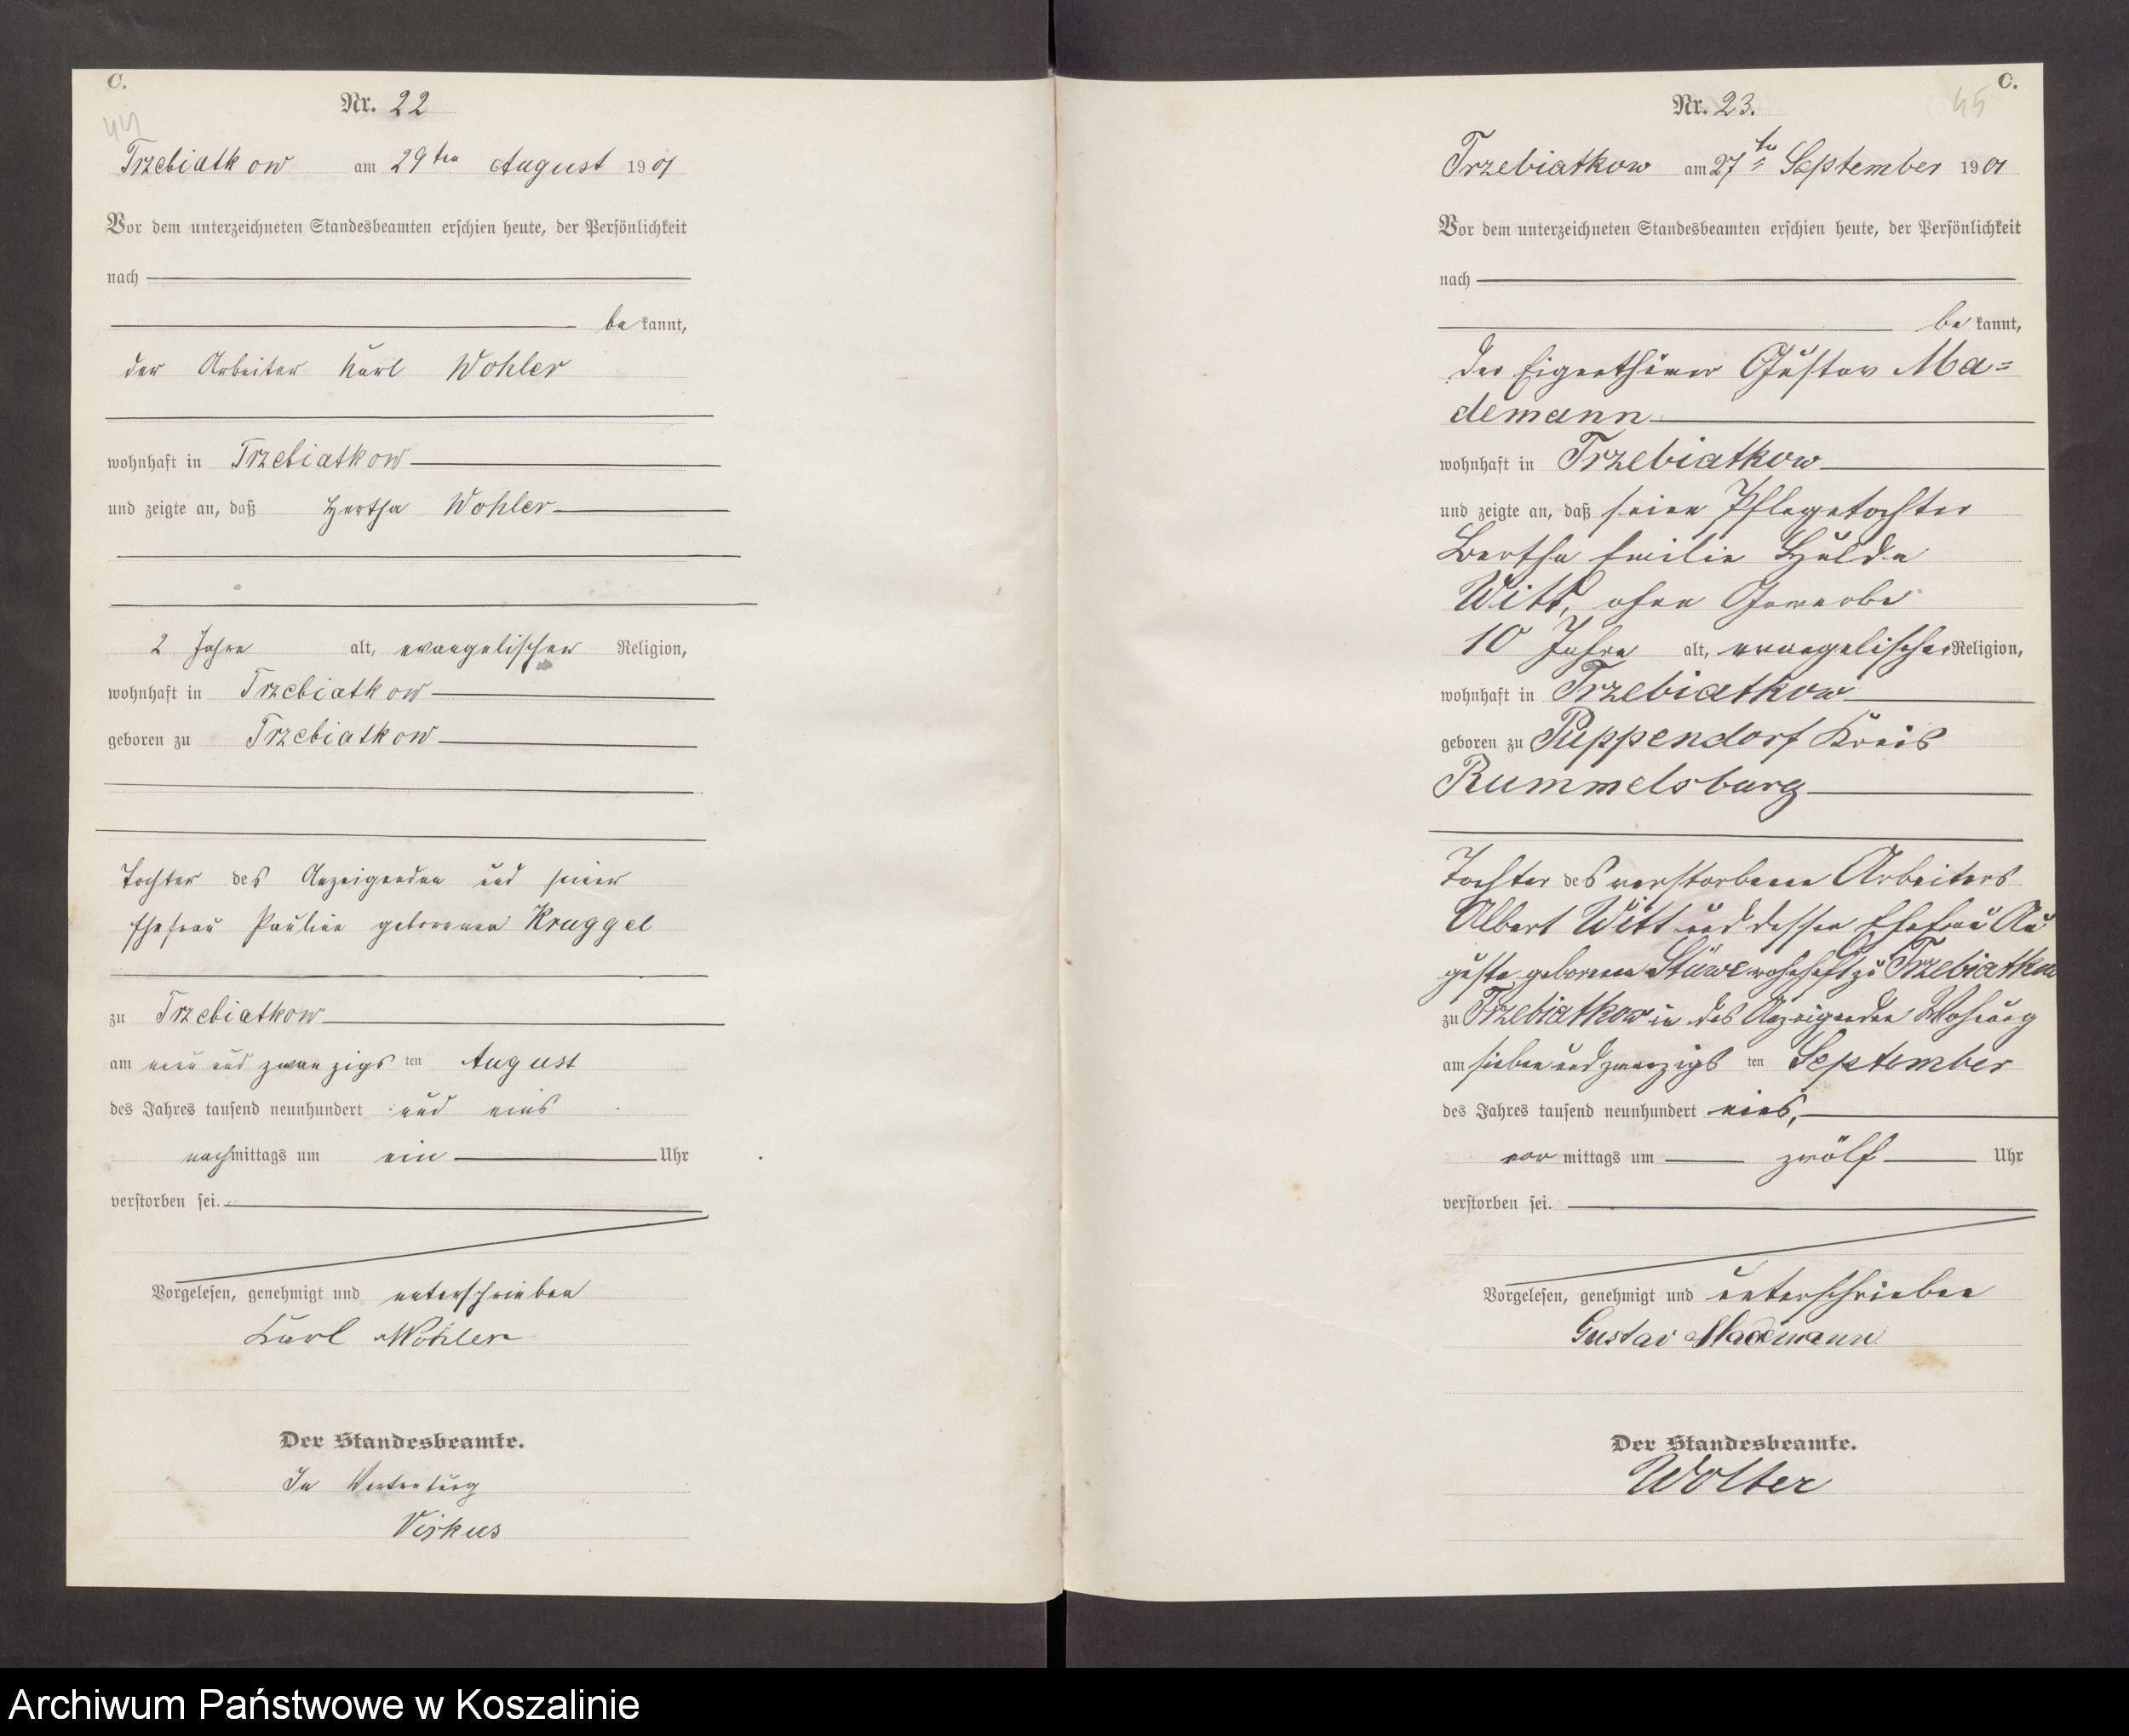 C.
44
Nr. 22
Trzebiatkow am 29ten August 1901
Vor dem unterzeichneten Standesbeamten erschien heute, der Persönlichkeit
nach
bekannt,
der Arbeiter Karl Wohler
wohnhaft in Trzebiatkow
und zeigte an, daß Hertha Wohler
2 Jahre alt, evangelischer Religion,
wohnhaft in Trzebiatkow
geboren zu Trzebiatkow
Tochter des Anzeigenden und seiner
Ehefrau Pauline geborenen Kruggel
zu Trzebiatkow
am neunundzwanzigsten August
des Jahres tausend neunhundert und eins
nachmittags um ein Uhr
verstorben sei.
Vorgelesen, genehmigt und unterschrieben
Karl Wohler
Der Standesbeamte.
In Vertretung
Virkus
C.
45
Nr. 23.
Trzebiatkow am 27ten September 1901
Vor dem unterzeichneten Standesbeamten erschien heute, der Persönlichkeit
nach
bekannt,
der Eigenthümer Gustav Ma=
demann
wohnhaft in Trzebiatkow
und zeigte an, daß seine Pflegetochter
Bertha Emilie Hulda
Witt, ohne Gewerbe
10 Jahre alt, evangelischer Religion,
wohnhaft in Trzebiatkow
geboren zu Puppendorf Kreis
Rummelsburg
Tochter des verstorbenen Arbeiters
Albert Witt und dessen Ehefrau Au
guste geborenen Stüwe wohnhaft zu Trzebiatkow
zu Trzebiatkow in des Anzeigenden Wohnung
am siebenundzwanzigsten September
des Jahres tausend neunhundert eins,
vormittags um zwölf Uhr
verstorben sei.
Vorgelesen, genehmigt und unterschrieben
Gustav Mademann
Der Standesbeamte.
Wolter
Archiwum Państwowe w Koszalinie